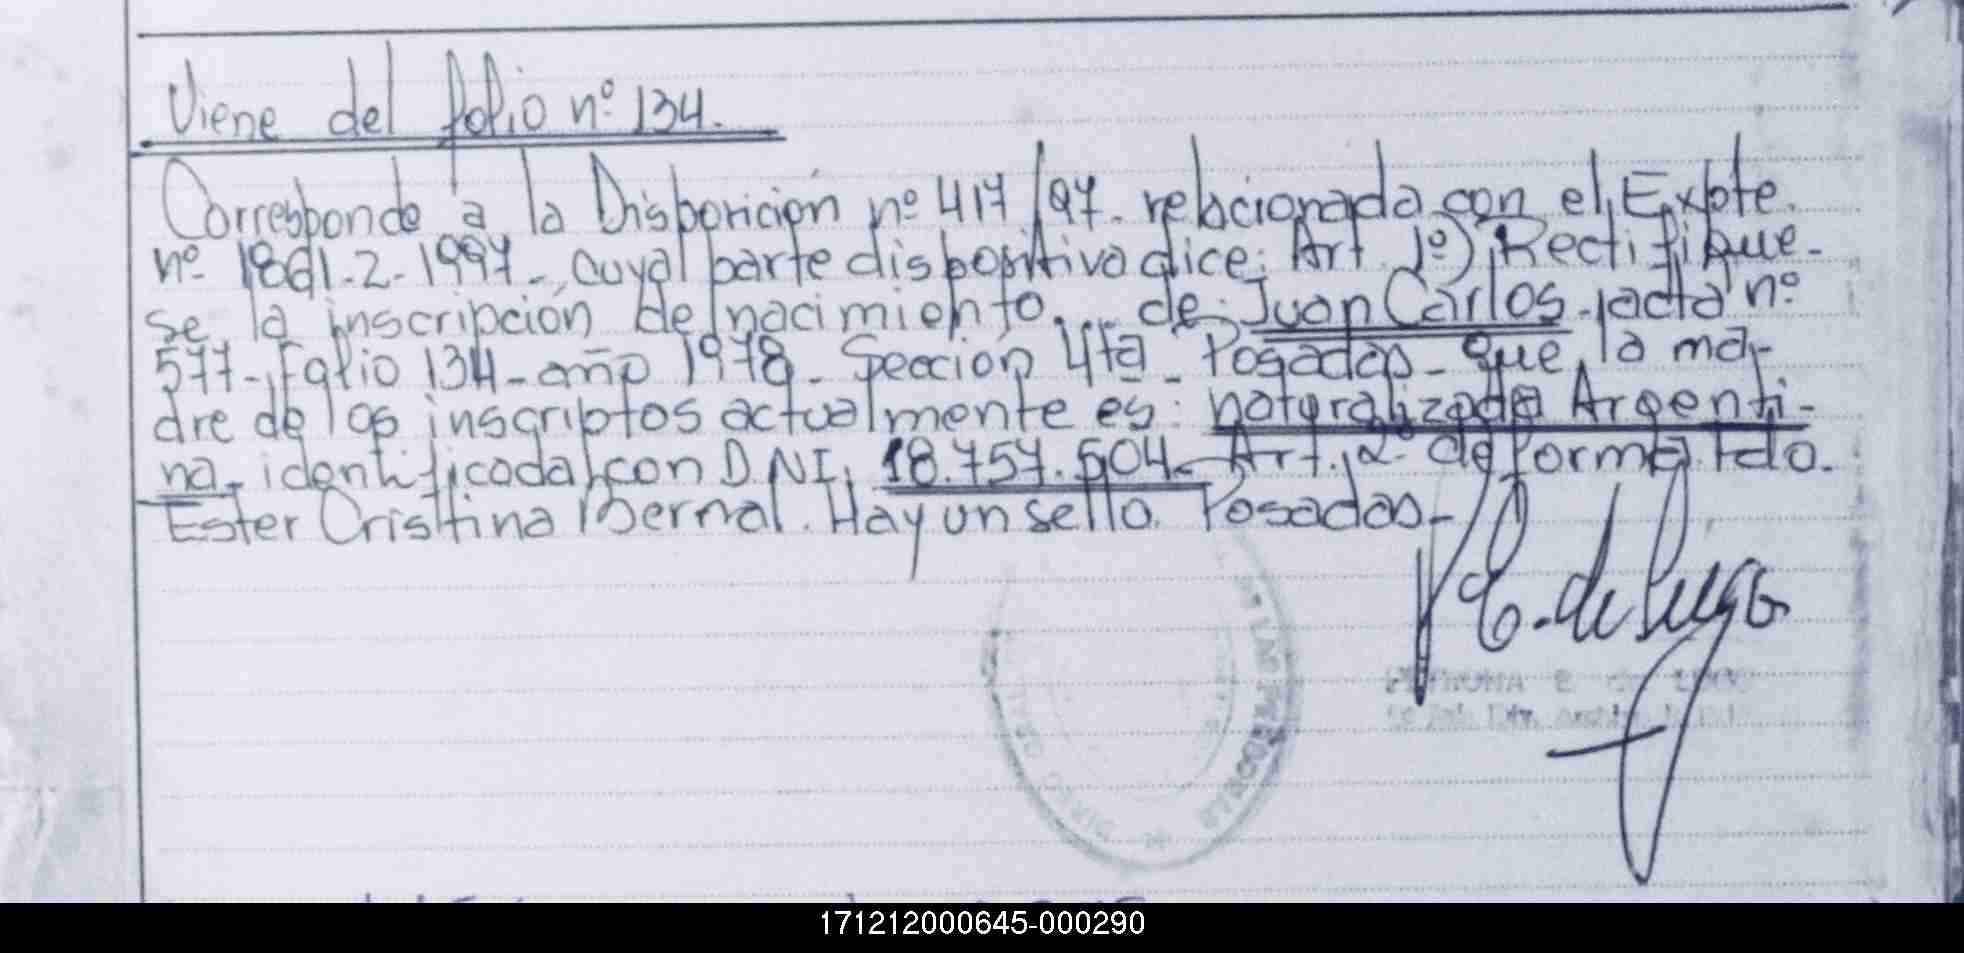 Viene del folio nº 134.
Corresponde a la Disposición nº 417/97. relacionada con el Expte.
nº 1861-2-1997-, cuya parte dispositiva dice: Art 1º) Rectifique-
se la inscripción de nacimiento... de: Juan Carlos - acta nº
577-, Folio 134- año 1978- Sección 4ta Posadas- que la ma-
dre de los inscriptos actualmente es: naturalizada Argenti-
na- identificada con D.N.I. 18.757.504- Art. 2º de forma. Fdo.
Ester Cristina Bernal. Hay un sello. Posadas-
E. de Lugo
E de LUGO
171212000645-000290